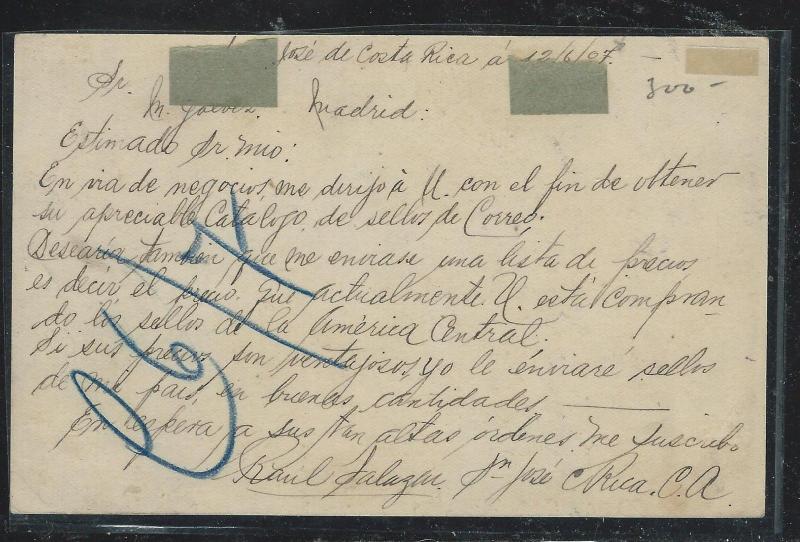 José de Costa Rica á 12/6/07. —
300 —
Sr.
M. Galvez. Madrid:
Estimado Sr. mio:
En via de negocios, me dirijo à U. con el fin de obtener
su apreciable Catálogo de sellos de Correo.
Desearía tambien que me enviase una lista de precios
es decir el precio que actualmente U. está compran
do los sellos de la América Central.
Si sus precios son ventajosos, yo le enviaré sellos
de mi pais, en buenas cantidades
En espera a sus tan altas órdenes me suscribo
Raúl Salazar. Sn José C Rica. C. A.